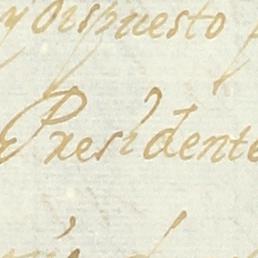 y dispuesto
Presidente